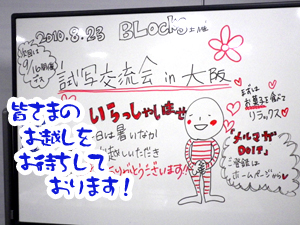 2010.8.23 BLock's 主催
次回は
9/16開催
デス!
試写交流会 in 大阪
いらっしゃいませ
まずは
お菓子を食べて
リラックス♡
本日は暑いなか
お越しいただき
ありがとうございます!!
「メルマガ
DOIT」
ご登録は
ホームページから
皆さまの
お越しを
お待ちして
おります!